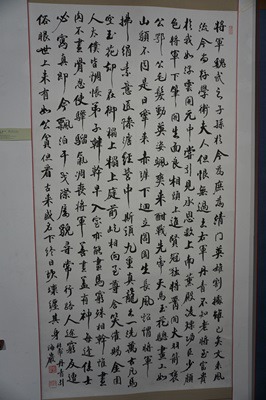 將軍魏武之子孫於今為庶為清門英雄割據雖已矣文采風
流今尚存學衛夫人但恨無過王右軍丹青不知老將至富貴
於我如浮雲開元中常引見承恩數上南薰殿凌煙功臣少顏
色將軍下筆開生面良相頭上進賢冠猛將腰間大羽箭褒
公鄂公毛髮動英姿颯爽來酣戰先帝天馬玉花驄畫工如
山貌不同是日牽來赤墀下迥立閶闔生長風詔謂將軍
拂絹素意匠慘澹經營中斯須九重真龍出一洗萬古凡馬
空玉花却在御榻上榻上庭前屹相向至尊含笑催賜金圉
人太僕皆惆悵弟子韓幹早入室亦能畫馬窮殊相幹惟畫
肉不畫骨忍使驊騮氣凋喪將軍善畫蓋有神每逢佳士
必寫真即今飄泊干戈際屢貌尋常行路人途窮反遭
俗眼白世上未有如公貧但看古來盛名下終日坎壈纏其身
丹青引